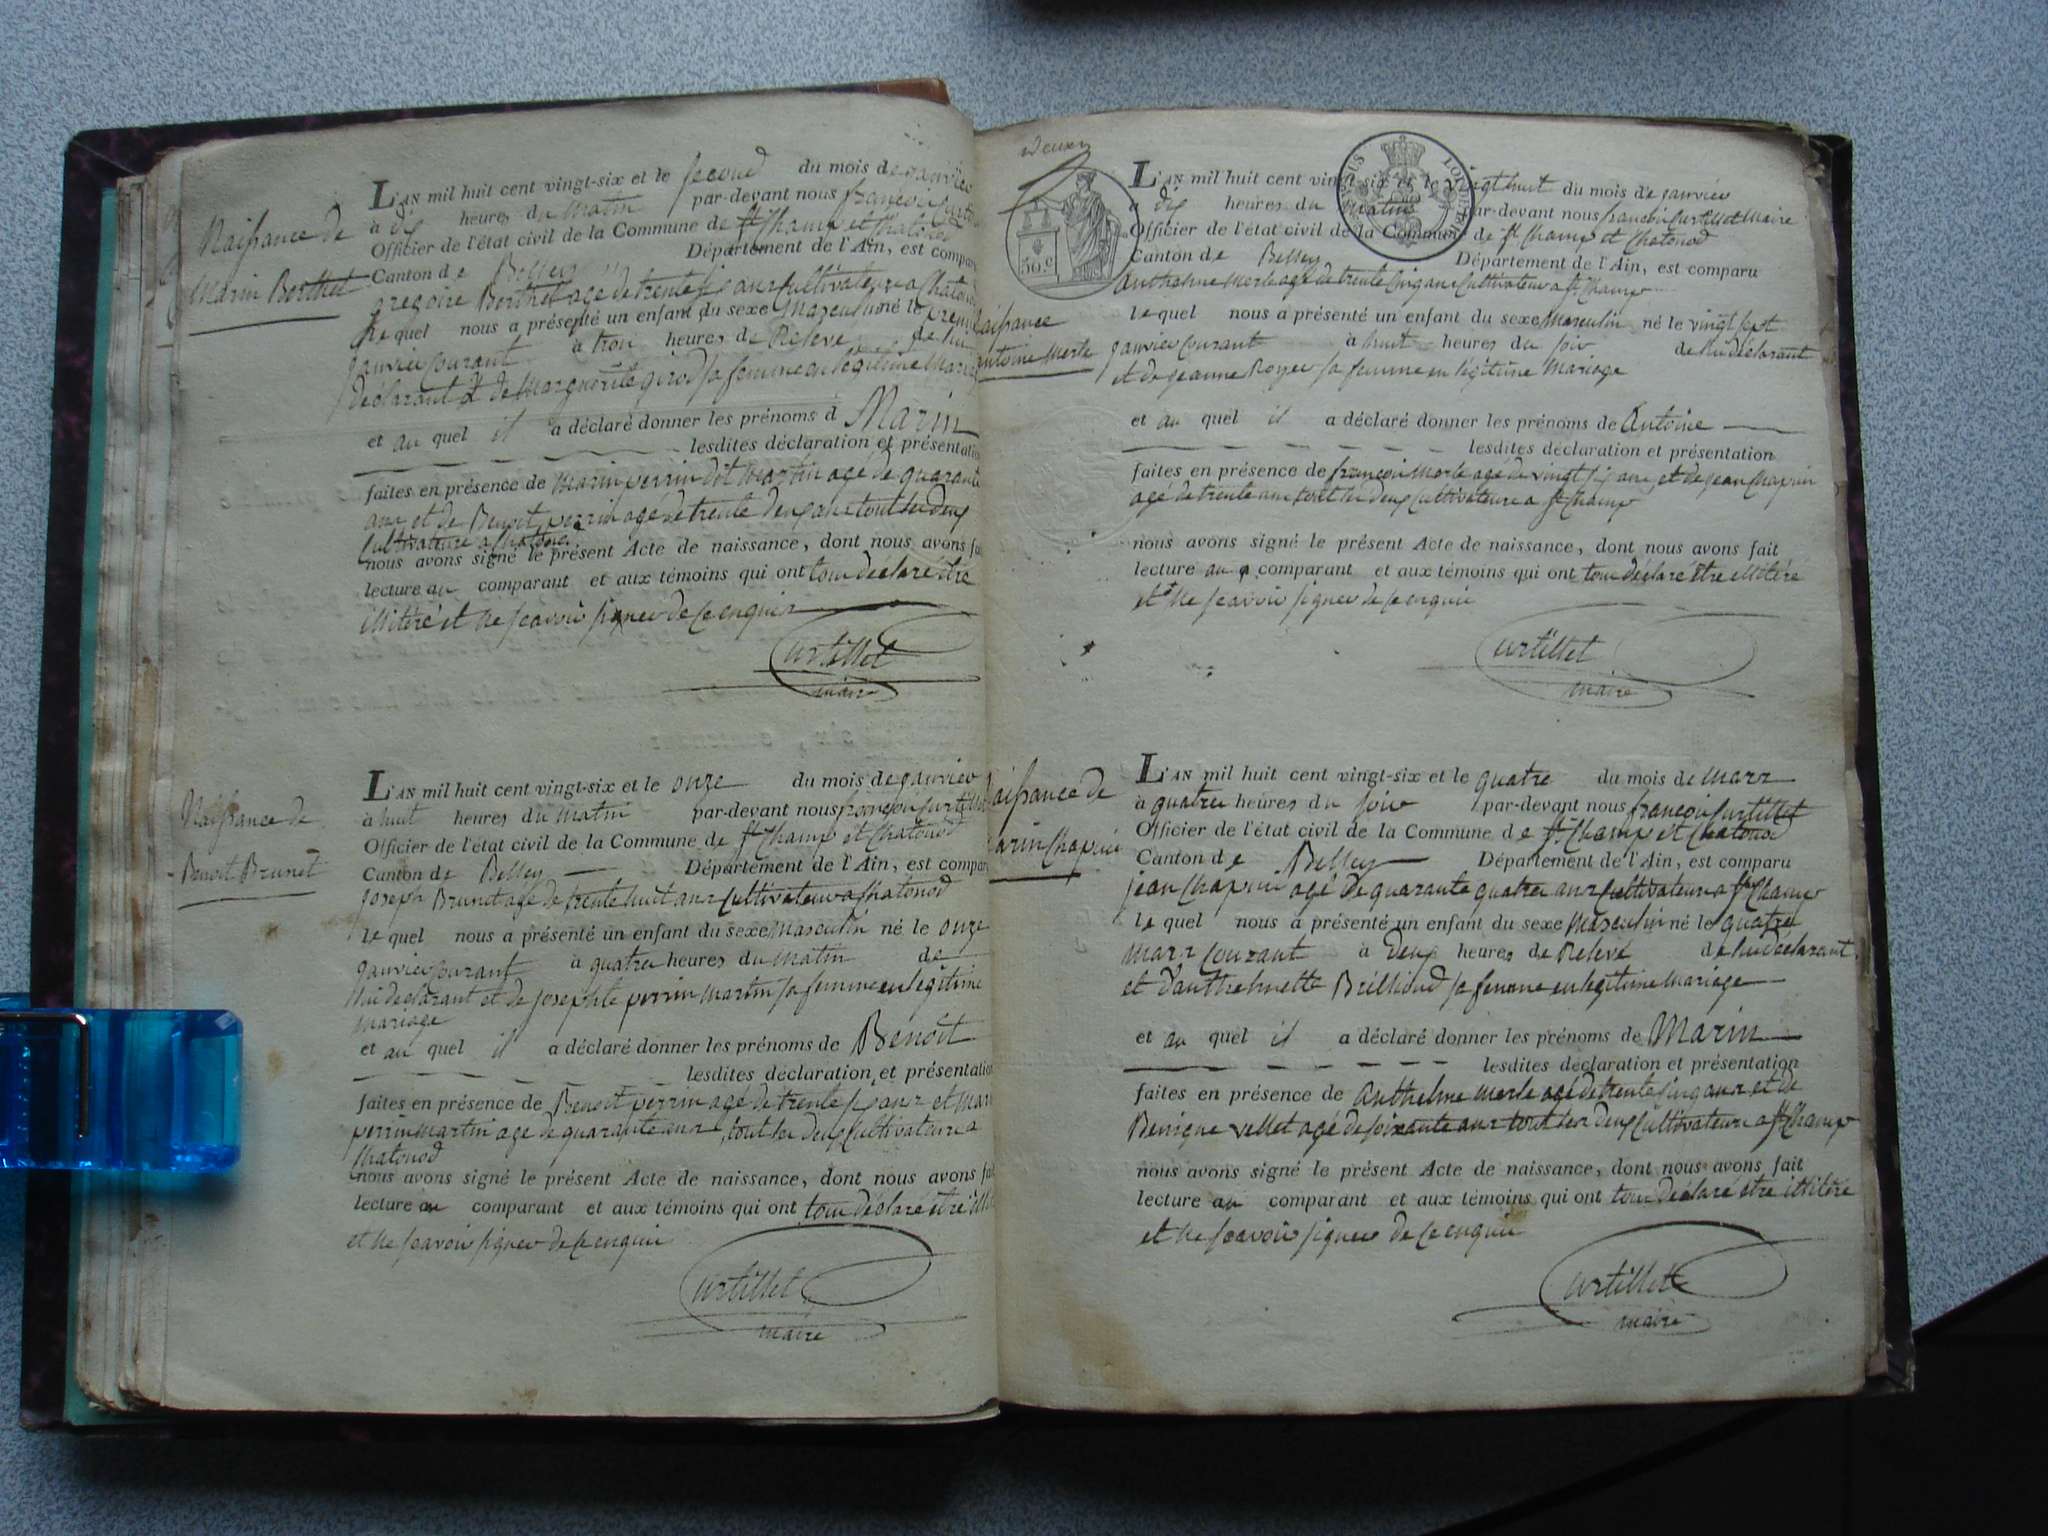 Naissance de
Marin Berthet
L'AN mil huit cent vingt-six et le second du mois de janvier
à dix heures du matin par-devant nous françois Curtillet
Officier de l'état civil de la Commune de St Champ et Chatonod
Canton de Belley Département de l'Ain, est comparu
gregoire Berthet agé de trente six ans Cultivateur a Chatonod
Le quel nous a présenté un enfant du sexe Masculin né le premier
janvier Courant à trois heures de Relevé de lui
déclarant et de Marguerite girod sa femme en légitime Mariage
et au quel il a déclaré donner les prénoms d Marin
lesdites déclaration et présentation
faites en présence de marin perrin dit martin agé de quarante
ans et de Benoit perrin agé de trente deux ans tout les deux
Cultivateurs a Chatonod
nous avons signé le présent Acte de naissance, dont nous avons fait
lecture au comparant et aux témoins qui ont tous déclaré être
illitéré et ne sçavoir signer de ce enquis
Curtillet
maire
Naissance de
Benoit Brunet
L'AN mil huit cent vingt-six et le onze du mois de janvier
à huit heures du matin par-devant nous françois Curtillet
Officier de l'état civil de la Commune de St Champ et Chatonod
Canton de Belley Département de l'Ain, est comparu
joseph Brunet agé de trente huit ans Cultivateur a Chatonod
le quel nous a présenté un enfant du sexe masculin né le onze
janvier Courant à quatre heures du matin de
lui declarant et de josephte perrin martin sa femme en légitime
mariage
et au quel il a déclaré donner les prénoms de Benoit
lesdites déclaration et présentation
faites en présence de Benoit perrin agé de trente six ans et marin
perrin martin agé de quarante ans, tout les deux Cultivateurs a
Chatonod
nous avons signé le présent Acte de naissance, dont nous avons fait
lecture au comparant et aux témoins qui ont tous déclaré être illi
et ne sçavoir signer de ce enquis
Curtillet
maire
deux
50 c
LOUIS
Naissance
antoine merle
L'AN mil huit cent vingt-six et le vingt huit du mois de janvier
à dix heures du matin par-devant nous françois Curtillet Maire
Officier de l'état civil de la Commune de St Champ et Chatonod
Canton de Belley Département de l'Ain, est comparu
Anthelme Merle agé de trente Cinq ans Cultivateur a St Champ
le quel nous a présenté un enfant du sexe Masculin né le vingt sept
janvier Courant à huit heures du soir de lui déclarant
et de jeanne Royer sa femme en légitime Mariage
et au quel il a déclaré donner les prénoms de Antoine
lesdites déclaration et présentation
faites en présence de françois Merle agé de vingt six ans et de jean Chapuis
agé de trente ans tout les deux Cultivateurs a St Champ
nous avons signé le présent Acte de naissance, dont nous avons fait
lecture au comparant et aux témoins qui ont tous déclaré être illitéré
et ne sçavoir signer de ce enquis
Curtillet
maire
Naissance de
marin Chapuis
L'AN mil huit cent vingt-six et le quatre du mois de mars
à quatre heures du soir par-devant nous françois Curtillet
Officier de l'état civil de la Commune de St Champ et Chatonod
Canton de Belley Département de l'Ain, est comparu
jean Chapuis agé de quarante quatre ans Cultivateur a St Champ
le quel nous a présenté un enfant du sexe Masculin né le quatre
mars Courant à deux heures de Relevé de lui declarant
et d'anthelmette Brillioud sa femme en légitime mariage
et au quel il a déclaré donner les prénoms de Marin
lesdites déclaration et présentation
faites en présence de anthelme merle agé de trente Cinq ans et de
Benigne vellet agé de soixante ans tout les deux Cultivateurs a St Champ
nous avons signé le présent Acte de naissance, dont nous avons fait
lecture au comparant et aux témoins qui ont tous déclaré etre illitéré
et ne sçavoir signer de ce enquis
Curtillet
maire